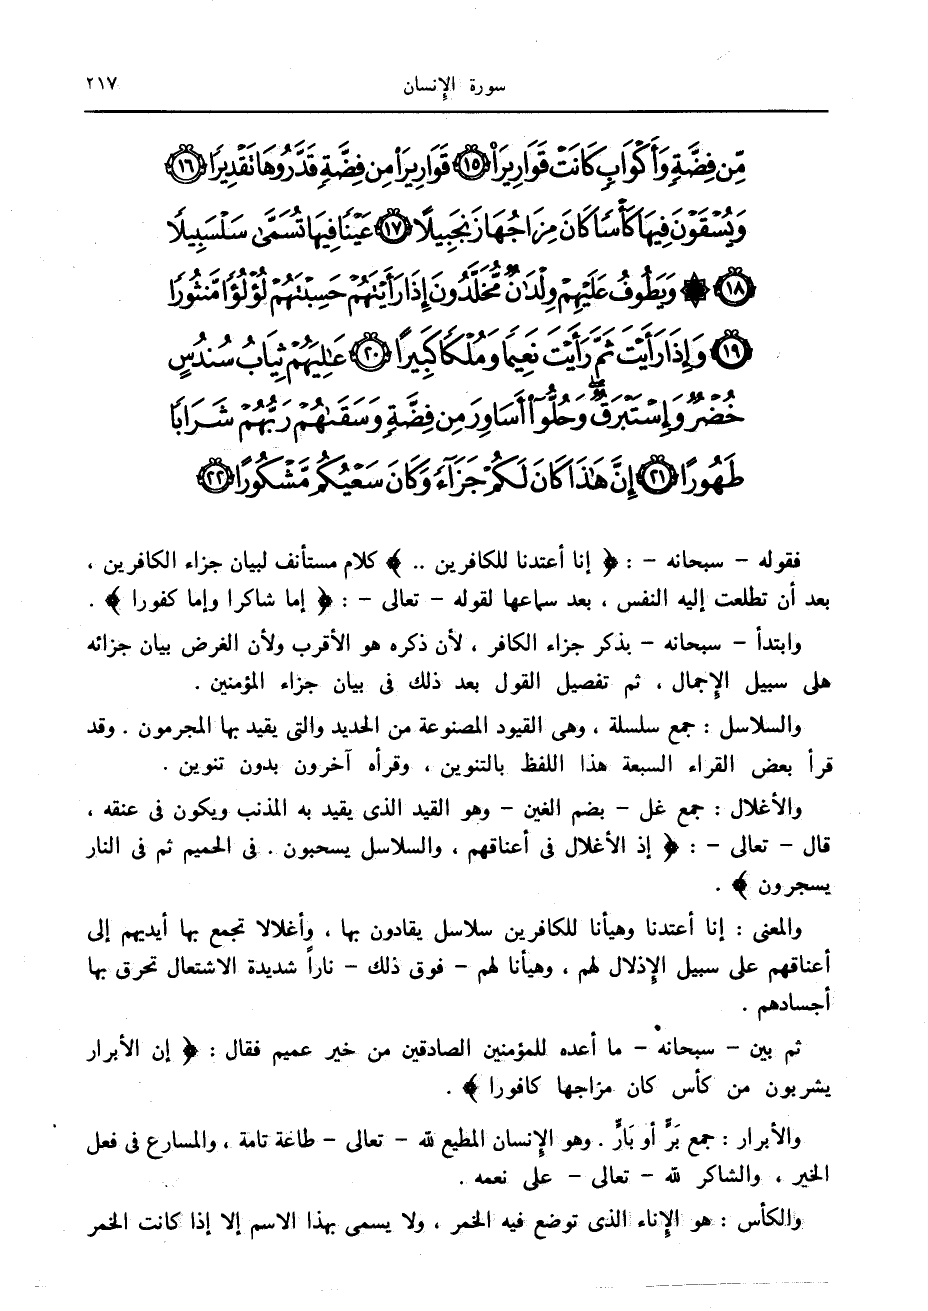 سورة الإنسان ٢١٧
مِّن فِضَّةٍ وَأَكْوَابٍ كَانَتْ قَوَارِيرَا۠ ١٥ قَوَارِيرَا۟ مِن فِضَّةٍ قَدَّرُوهَا تَقْدِيرًا ١٦
وَيُسْقَوْنَ فِيهَا كَأْسًا كَانَ مِزَاجُهَا زَنجَبِيلًا ١٧ عَيْنًا فِيهَا تُسَمَّىٰ سَلْسَبِيلًا
١٨ ۞ وَيَطُوفُ عَلَيْهِمْ وِلْدَانٌ مُّخَلَّدُونَ إِذَا رَأَيْتَهُمْ حَسِبْتَهُمْ لُؤْلُؤًا مَّنثُورًا
١٩ وَإِذَا رَأَيْتَ ثَمَّ رَأَيْتَ نَعِيمًا وَمُلْكًا كَبِيرًا ٢٠ عَٰلِيَهُمْ ثِيَابُ سُندُسٍ
خُضْرٌ وَإِسْتَبْرَقٌ ۖ وَحُلُّوٓا۟ أَسَاوِرَ مِن فِضَّةٍ وَسَقَىٰهُمْ رَبُّهُمْ شَرَابًا
طَهُورًا ٢١ إِنَّ هَٰذَا كَانَ لَكُمْ جَزَآءً وَكَانَ سَعْيُكُم مَّشْكُورًا ٢٢
فقوله – سبحانه – : ﴿ إنا أعتدنا للكافرين .. ﴾ كلام مستأنف لبيان جزاء الكافرين ،
بعد أن تطلعت إليه النفس ، بعد سماعها لقوله – تعالى – : ﴿ إما شاكرا وإما كفورا ﴾ .
وابتدأ – سبحانه – بذكر جزاء الكافر ، لأن ذكره هو الأقرب ولأن الغرض بيان جزائه
هلى سبيل الإجمال ، ثم تفصيل القول بعد ذلك فى بيان جزاء المؤمنين .
والسلاسل : جمع سلسلة ، وهى القيود المصنوعة من الحديد والتى يقيد بها المجرمون . وقد
قرأ بعض القراء السبعة هذا اللفظ بالتنوين ، وقرأه آخرون بدون تنوين .
والأغلال : جمع غل – بضم الغين – وهو القيد الذى يقيد به المذنب ويكون فى عنقه ،
قال – تعالى – : ﴿ إذ الأغلال فى أعناقهم ، والسلاسل يسحبون . فى الحميم ثم فى النار
يسجرون ﴾ .
والمعنى : إنا أعتدنا وهيأنا للكافرين سلاسل يقادون بها ، وأغلالا تجمع بها أيديهم إلى
أعناقهم على سبيل الإذلال لهم ، وهيأنا لهم – فوق ذلك – ناراً شديدة الاشتعال تحرق بها
أجسادهم .
ثم بين – سبحانه – ما أعده للمؤمنين الصادقين من خير عميم فقال : ﴿ إن الأبرار
يشربون من كأس كان مزاجها كافورا ﴾ .
والأبرار : جمع بَرٍّ أو بَارٍّ . وهو الإنسان المطيع لله – تعالى – طاعة تامة ، والمسارع فى فعل
الخير ، والشاكر لله – تعالى – على نعمه .
والكأس : هو الإناء الذى توضع فيه الخمر ، ولا يسمى بهذا الاسم إلا إذا كانت الخمر